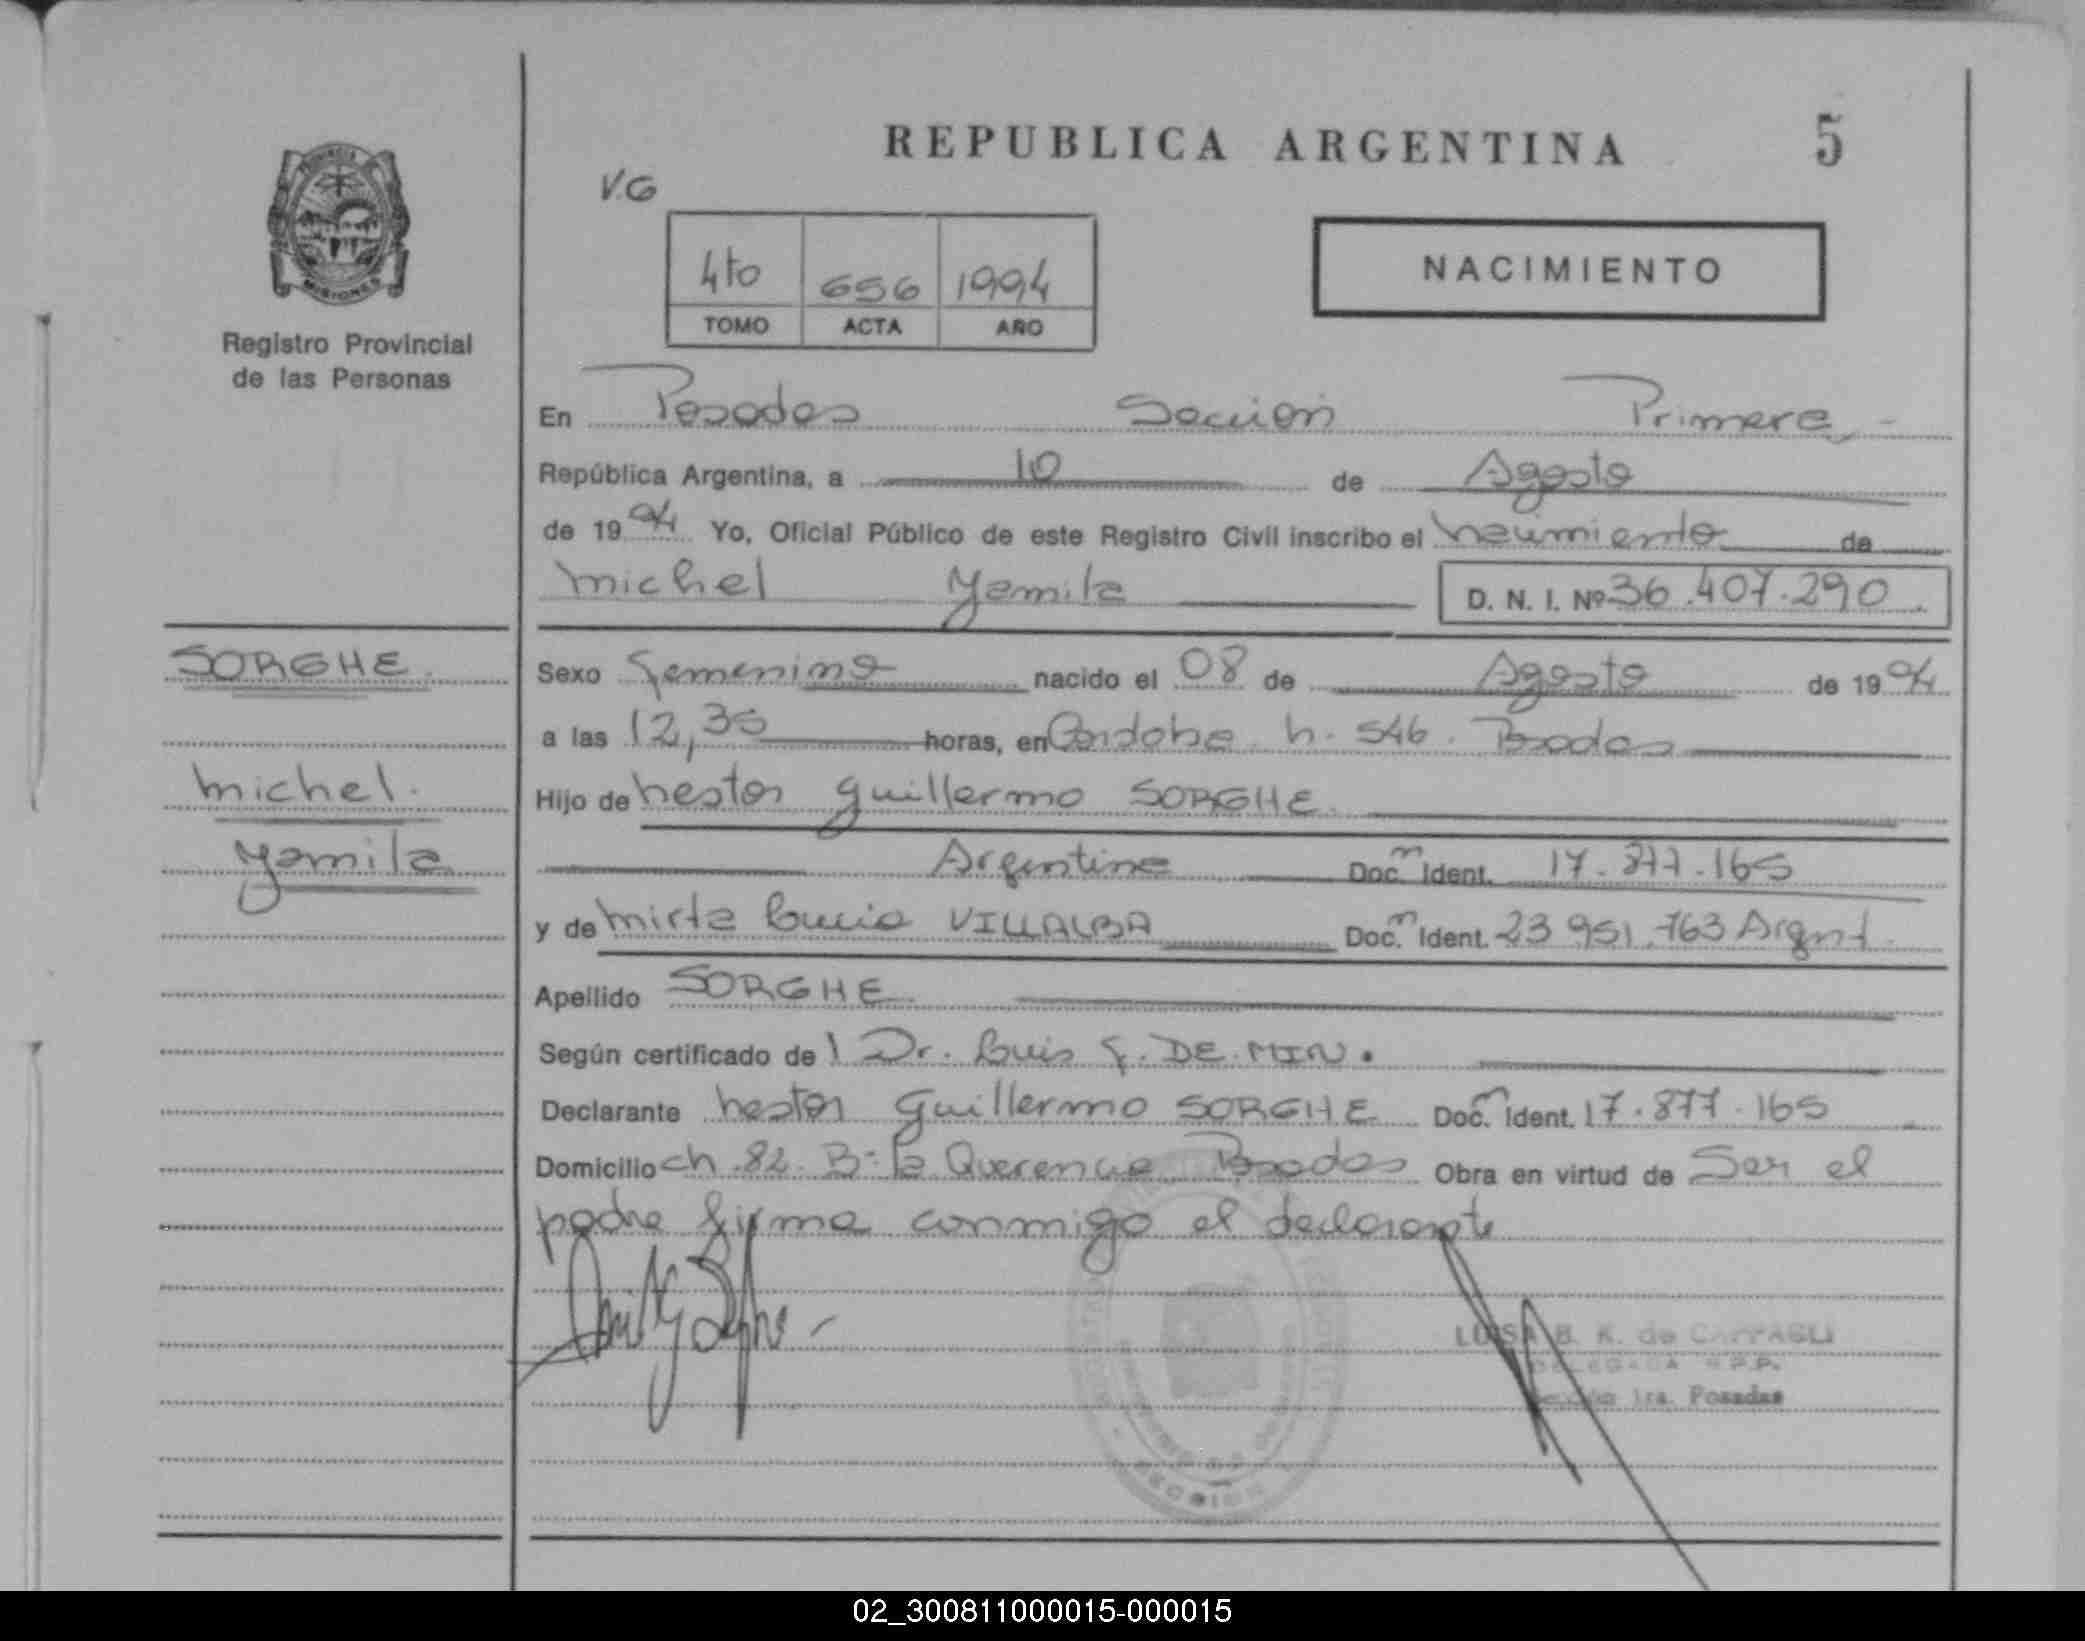 REPUBLICA ARGENTINA 5
V.G
4to 656 1994
TOMO ACTA AÑO
NACIMIENTO
PROVINCIA
MISIONES
Registro Provincial
de las Personas
En Posadas Sección Primera
República Argentina, a 10 de Agosto
de 1994 Yo, Oficial Público de este Registro Civil inscribo el nacimiento de
Michel Yamila D. N. I. Nº 36.407.290
SORGHE
Michel
Yamila
Sexo Femenino nacido el 08 de Agosto de 1994
a las 12,35 horas, en Cordoba n. 546. Posadas
Hijo de Nestor Guillermo SORGHE
Argentina Doc. Ident. 17.877.165
y de Mirta Lucia VILLALBA Doc. Ident. 23 951.763 Argent.
Apellido SORGHE
Según certificado de l Dr. Luis F. DE MIN.
Declarante Nestor Guillermo SORGHE Doc. Ident. 17.877.165
Domicilio ch. 82. Bº la Querencia Posadas Obra en virtud de Ser el
padre firma conmigo el declarante
LUISA B. K. de
DELEGADA R.P.P.
Sección 1ra. Posadas
02_300811000015-000015